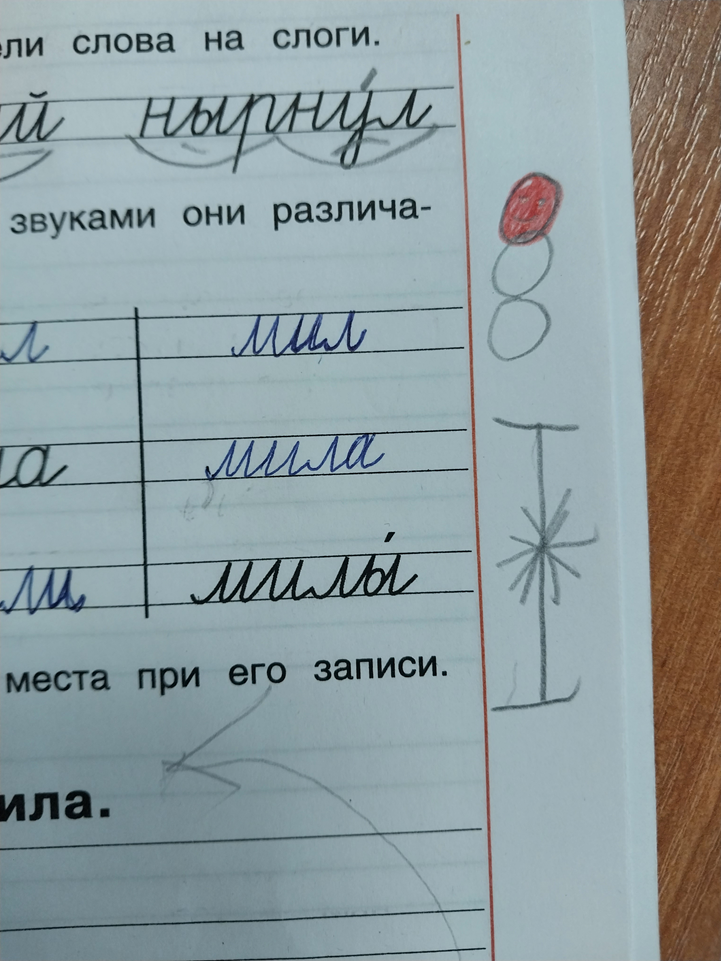 ели слова на слоги.
ый ныр­ну́л
звуками они различа-
л мил
ла мила
или милы́
места при его записи.
ила.